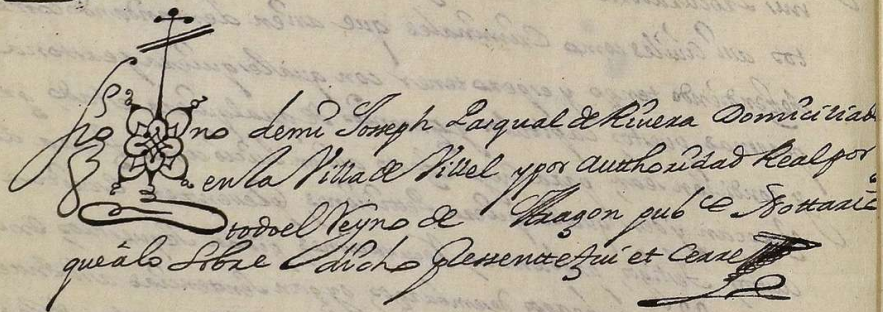 Sig no de mi Joseph Pasqual de Rivera Domiciliado
en la Villa de Villel y por authoridad Real por
todo el Reyno de Aragon pub.co Nottario
que à lo Sobre dicho Pressente fui et Cerre